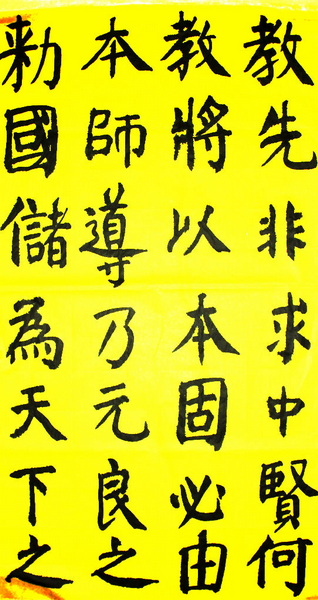 勑國儲為天下之
本師導乃元良之
教將以本固必由
教先非求中賢何